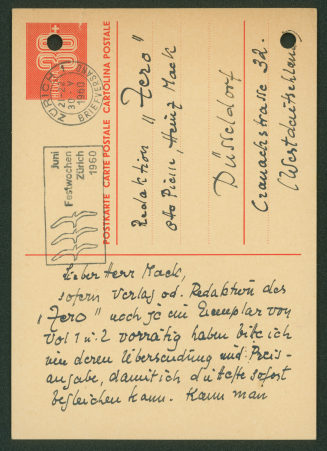 30+
ZÜRICH
1960
BRIEFVERSAND
Juni
Festwochen
Zürich
1960
POSTKARTE CARTE POSTALE CARTOLINA POSTALE
Redaktion "Zero"
Otto Piene, Heinz Mack
Düsseldorf
Cranachstraße 32.
(Westdeutschland)
Lieber Herr Mack,
sofern Verlag od. Redaktion des
"Zero" noch je ein Exemplar von
Vol 1 u. 2 vorrätig haben bitte ich
um deren Übersendung mit Preis-
angabe, damit ich sofort
begleichen kann. Kann man